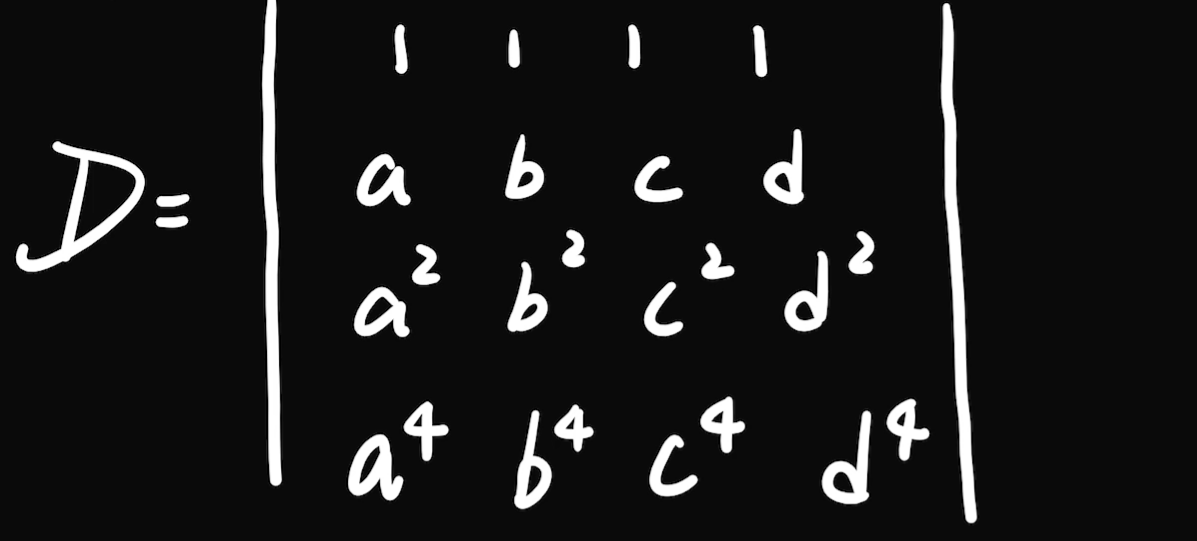 1 1 1 1
D= a b c d
a² b² c² d²
a⁴ b⁴ c⁴ d⁴